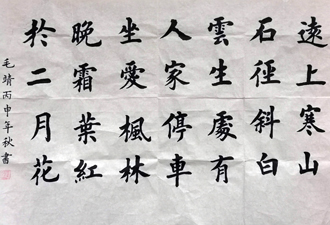 遠上寒山
石徑斜白
雲生處有
人家停車
坐愛楓林
晚霜葉紅
於二月花
毛靖丙申年秋書